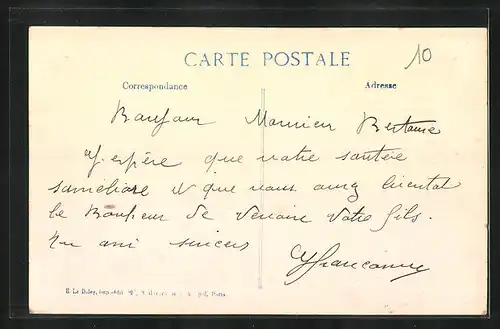 10
CARTE POSTALE
Correspondance
Adresse
Bonjour Monsieur
J'espère que votre santée
saméliore et que vous aurez bientot
le Bonheur de revoir votre fils.
Un ami sincere
E. Le Deley, Paris